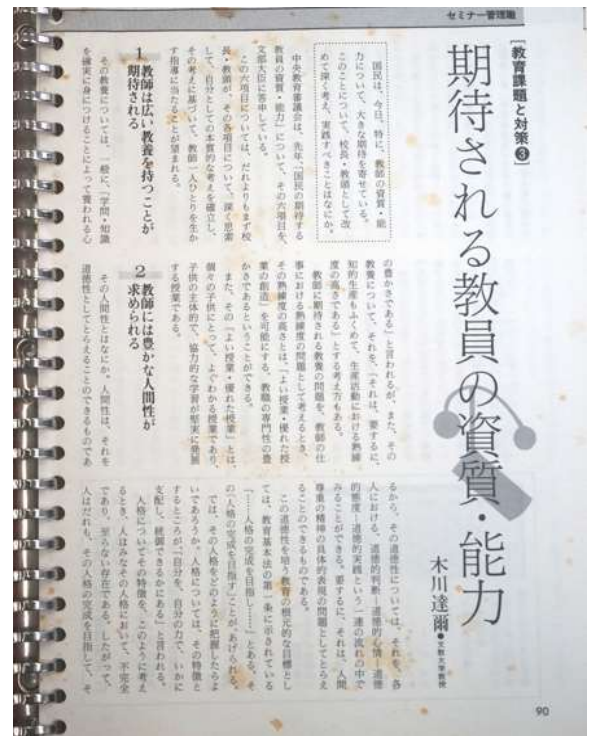 セミナー管理職
[教育課題と対策❸]
期待される教員の資質・能力
木川達爾●文教大学教授
国民は、今日、特に、教師の資質・能
力について、大きな期待を寄せている。
このことについて、校長・教頭として改
めて深く考え、実践すべきことはなにか。
中央教育審議会は、先年、「国民の期待する
教員の資質・能力」について、その六項目を、
文部大臣に答申している。
この六項目については、だれよりもまず校
長・教頭が、その各項目について、深く思索
して、自分としての本質的な考えを確立し、
その考えに基づいて、教師一人ひとりを生か
す指導に当たることが望まれる。
1 教師は広い教養を持つことが
期待される
その教養については、一般に、「学問・知識
を確実に身につけることによって養われる心
の豊かさである」と言われるが、また、その
教養について、それを、「それは、要するに、
知的生産もふくめて、生産活動における熟練
度の高さである」とする考え方もある。
教師に期待される教養の問題を、教師の仕
事における熟練度の問題として考えるとき、
その熟練度の高さとは、「よい授業・優れた授
業の創造」を可能にする、教職の専門性の豊
かさであるということができる。
また、その「よい授業・優れた授業」とは、
個々の子供にとって、よくわかる授業であり、
子供の主体的で、協力的な学習が堅実に発展
する授業である。
2 教師には豊かな人間性が
求められる
その人間性とはなにか。人間性は、それを
道徳性としてとらえることのできるものであ
るから、その道徳性については、それを、各
人における、道徳的判断—道徳的心情—道徳
的態度—道徳的実践という一連の流れの中で
みることができる。要するに、それは、人間
尊重の精神の具体的表現の問題としてとらえ
ることのできるものである。
この道徳性を培う教育の根元的な目標とし
ては、教育基本法の第一条に示されている
「……人格の完成を目指し……」とある、そ
の「人格の完成を目指す」ことが、あげられる。
では、その人格をどのように把握したらよ
いであろうか。人格については、その特徴と
するところが「自分を、自分の力で、いかに
支配し、統御できるかにある」と言われる。
人格についてその特徴を、このように考え
るとき、人はみなその人格において、不完全
であり、至らない存在である。したがって、
人はだれも、その人格の完成を目指して、そ
90